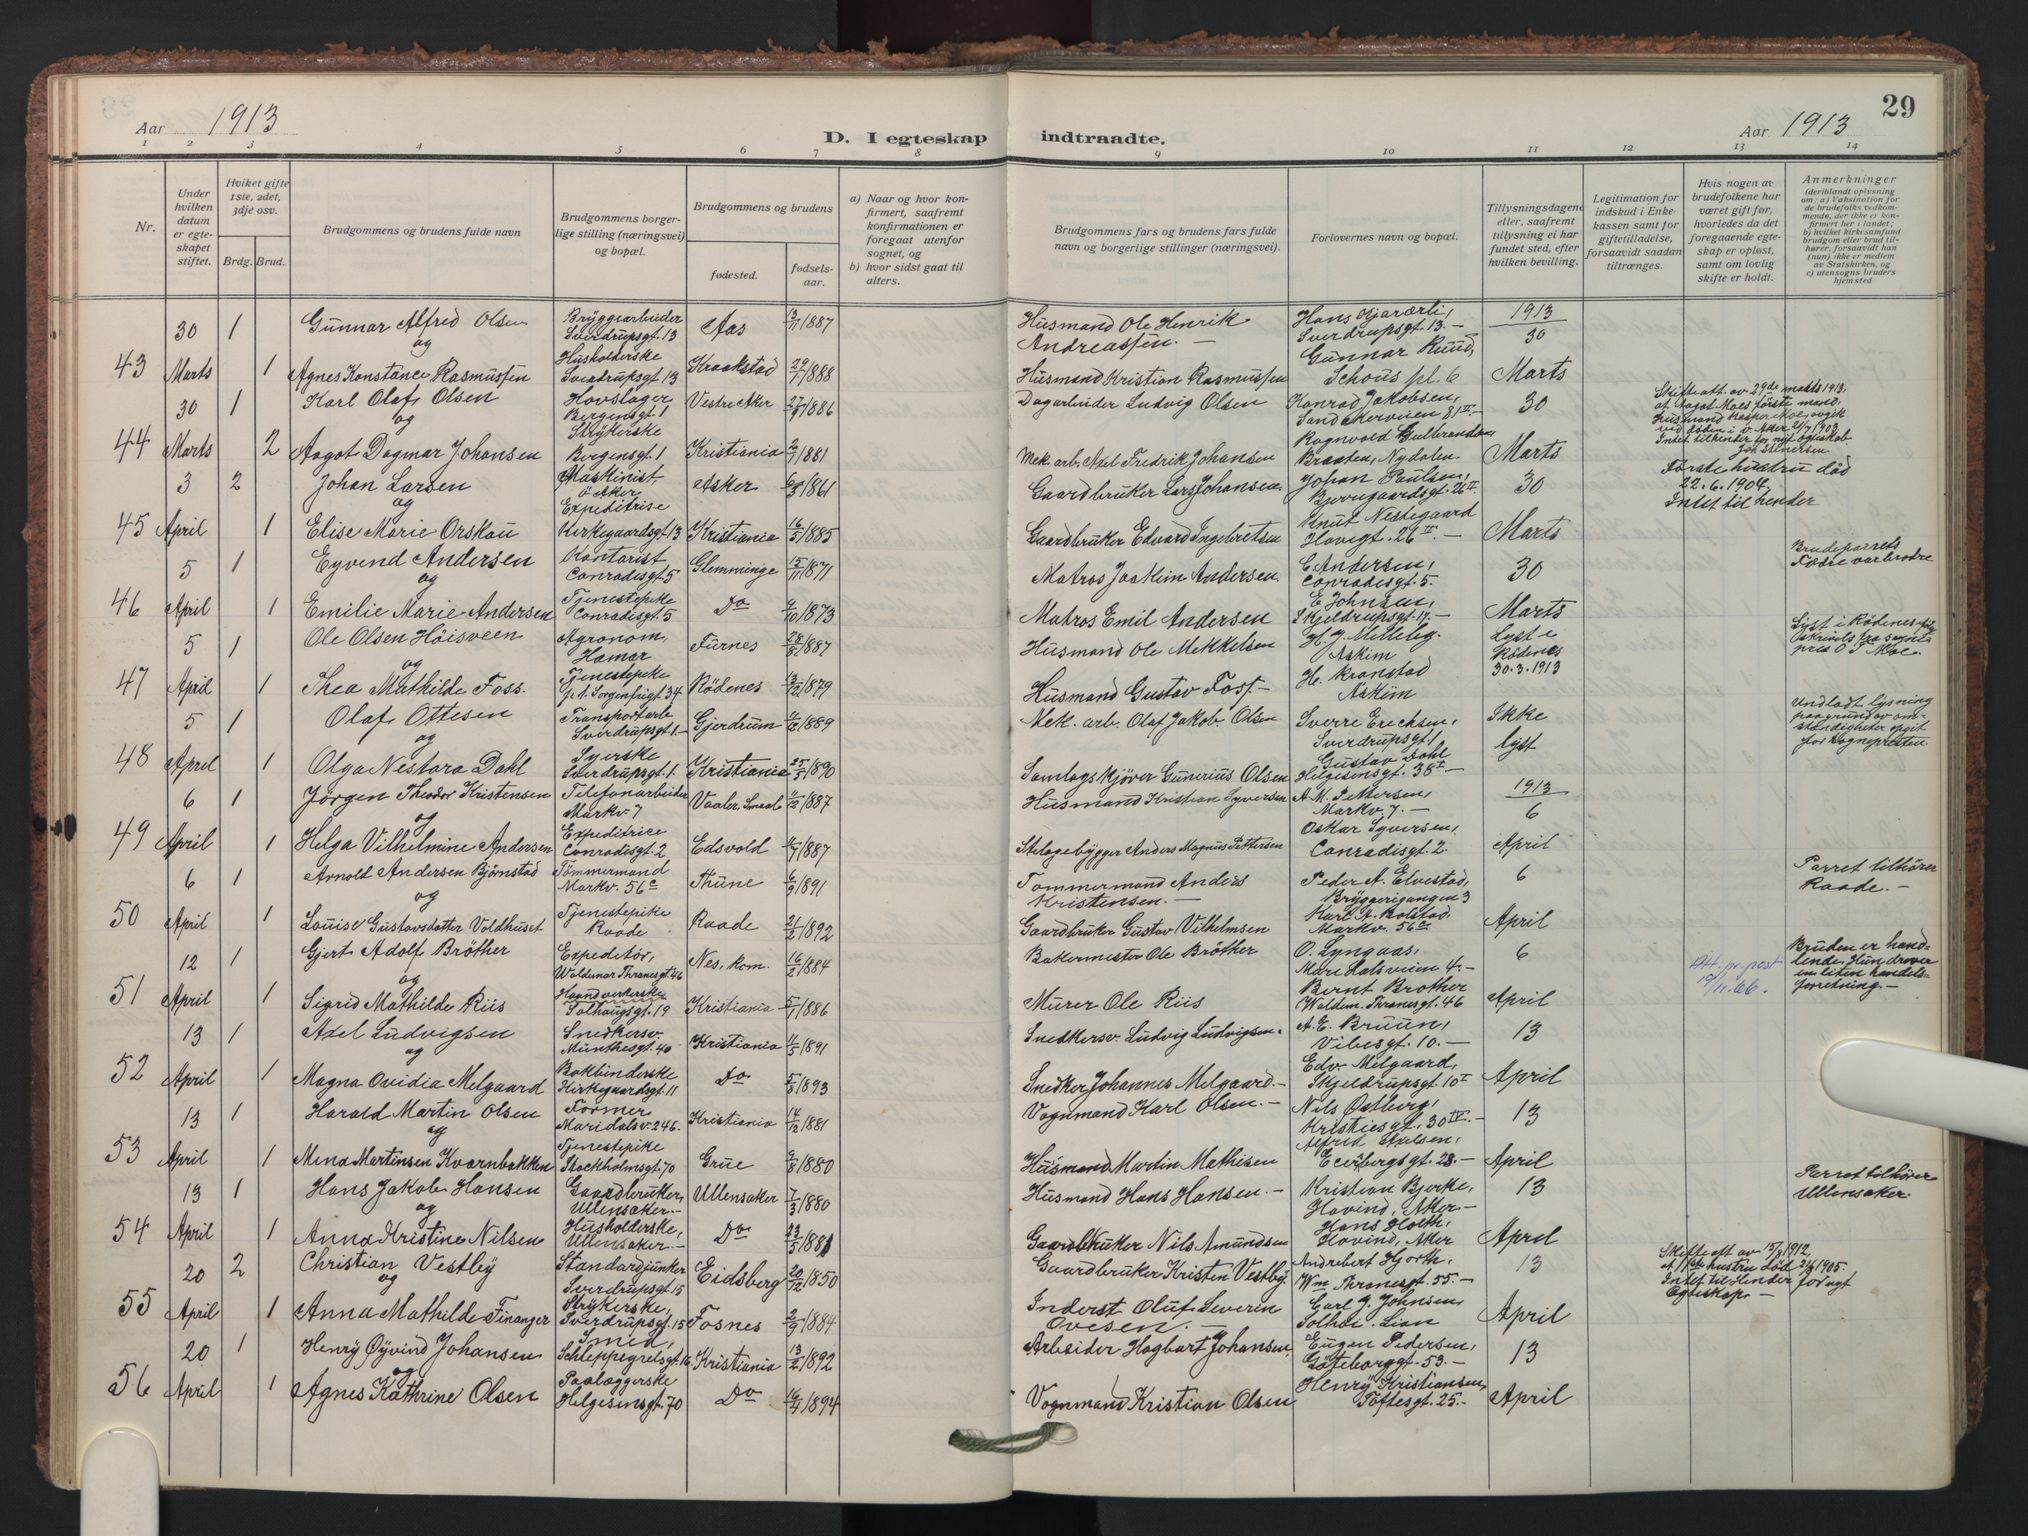 29
Aar 1913
D. I egteskap indtraadte.
Aar 1913
1 2 3 4 5 6 7 8 9 10 11 12 13 14
Nr.
Under hvilken datum er egteskapet stiftet.
Hviket gifte 1ste, 2det, 3dje osv.
Brdg. Brud.
Brudgommens og brudens fulde navn
Brudgommens borgerlige stilling (næringsvei) og bopæl.
Brudgommens og brudens
fødested.
fødselsaar.
a) Naar og hvor konfirmert, saafremt konfirmationen er foregaat utenfor sognet, og
b) hvor sidst gaat til alters.
Brudgommens fars og brudens fars fulde navn og borgerlige stillinger (næringsvei).
Forlovernes navn og bopæl.
Tillysningsdagene eller, saafremt tillysning ei har fundet sted, efter hvilken bevilling.
Legitimation for indskud i Enkekassen samt for giftetilladelse, forsaavidt saadan tiltrænges.
Hvis nogen av brudefolkene har været gift før, hvorledes da det foregaaende egteskap er opløst, samt om lovlig skifte er holdt.
Anmerkninger
(deriblandt oplysning om: a) Vaksination for de brudefolks vedkommende, der ikke er konfirmert her i landet; b) hvilket kirkesamfund brudgom eller brud tilhører, forsaavidt han (hun) ikke er medlem av Statskirken, og c) utensogns bruders hjemsted
43 30 Marts 1 Gunnar Alfred Olsen Bryggearbeider Sverdrupsgt. 13 Aas 13/11 1887 Husmand Ole Henrik Andreassen. Sverdrupsgt. 13. 1913 30
og
1 Agnes Konstance Rasmussen Husholderske Sverdrupsgt 13 Kraakstad 29/7 1888 Husmand Kristian Rasmussen Gunnar Ruud, Schous pl. 6 Marts
44 30 Marts 1 Karl Olaf Olsen Hovslager Bergensgt. 1 Vestre Aker 1886 Dagarbeider Ludvig Olsen Konrad Jakobsen, Sandakerveien 81 II. 30
og
2 Aagot Dagmar Johansen Strykerske Bergensgt. 1 Kristiania 1881 Mek. arb. Axel Fredrik Johansen Ragnvald Gulbrandsen, Braaten, Nydalen. Marts
Skifteatt. av 29de marts 1913, at Aagot Moes første mand, Husmand Kasper Moe, avgik ved døden i v. Aker 21/7 1903. Intet tilhinder for nyt egteskab
45 3 April 2 Johan Larsen Maskinist Ø. Aker Asker 1861 Gaardbruker Lars Johansen. Johan Paulsen, 30 Første hustru død 22.6.1904. Intet til hinder
og
1 Elise Marie Orskou Expeditrise Kirkegaardsgt 13 Kristiania 16/5 1885 Gaardbruker Edvard Ingebretsen Knut Nestegaard 26 II. Marts
46 5 April 1 Eyvend Andersen Kontorist Conradisgt 5 Glemminge 15/11 1871 Matros Joakim Andersen. E. Andersen, Conradisgt. 5. 30 Brudeparrets Fædre var brødre
og
1 Emilie Marie Andersen Tjenestepike Conradisgt 5 Do 1873 Matros Emil Andersen E. Johnsen, Skjeldrupsgt. 17. Marts
47 5 April 1 Ole Olsen Höisveen Agronom, Hamar Furnes 28/8 1887 Husmand Ole Mekkelsen Askim Lyst i Rödenes 30.3.1913
og
1 Thea Mathilde Foss. Tjenestepike Sorgenfrigt 34 Rödenes 13/12 1879 Husmand Gustav Foss H. Kranstad Askim
48 5 April 1 Olaf Ottesen Transportarb Sverdrupsgt. 1. Gjerdrum 1889 Mek. arb. Olaf Jakob Olsen Sverre Erichsen, Sverdrupsgt. 1 Ikke lyst Undladt lysning paa grund av omstændigheter opgit for sognepresten
og
1 Olga Nestora Dahl Syerske Sverdrupsgt. 1. Kristiania 25/5 1890 Samlagskjører Gunerius Olsen Gustav Dahl Helgesensgt. 38 II
49 6 April 1 Jørgen Theodor Kristensen Telefonarbeider Markv. 7 Vaaler, Smaal 1887 Husmand Kristian Syversen A. M. Pettersen, Markv. 7. 1913 6
og
1 Helga Vilhelmine Andersen Expeditrice Conradisgt. 2 Edsvold 1887 Stilagebygger Anders Magnus Pettersen Oskar Syversen, Conradisgt. 2. April
50 6 April 1 Arnold Andersen Björnstad Tömmermand Markv. 56 c Thune 6/9 1891 Tømmermand Anders Kristensen. Peder A. Elvestad, Bryggerigangen 3 6 Parret tilhörer Raade.
og
1 Louise Gustavsdatter Voldhuset Tjenestepike Raade Raade 21/2 1892 Gaardbruker Gustav Vilhelmsen Markv. 56 c April
51 12 April 1 Gjert Adolf Bröther Expeditör, Waldemar Thranesgt 46 Nes, Rom. 16/2 1884 Bakermester Ole Bröther O. Lyngaas, Maridalsveien 4. 6 Bruden er handlende. Hun drever en liten handelsforretning.
og
1 Sigrid Mathilde Riis Haandverkerske 19 Kristiania 5/1 1886 Murer Ole Riis Bernt Brother Waldem. Thranesgt. 46 April
52 13 April 1 Axel Ludvigsen Snedkersv. Munthesgt. 40 Kristiania 11/5 1891 Snedkersv. Ludvig Ludvigsen. A. E. Bruun, Vibesgt. 10. 13
og
1 Magna Ovidia Melgaard Bokbinderske Kirkegaardsgt. 11 Do 5/3 1893 Snedker Johannes Melgaard. Edv. Melgaard, Skjeldrupsgt. 10 I April
53 13 April 1 Harald Martin Olsen Former Maridalsv. 246. Kristiania 14/12 1881 Vognmand Karl Olsen. Nils Østberg, Kristiesgt. 30 IV. 13
og
1 Mina Martinsen Kvarnbakken Tjenestepike Stockholmsgt. 70 Grue 9/8 1880 Husmand Martin Mathisen Alfred Axelsen, 28. April
54 13 April 1 Hans Jakob Hansen Gaardbruker, Ullensaker. Ullensaker 7/3 1880 Husmand Hans Hansen. Kristian Bjerke, Hovind, Aker. 13 Parret tilhörer Ullensaker.
og
1 Anna Kristine Nilsen Husholderske, Ullensaker. Do 23/5 1881 Gaardbruker Nils Amundsen Hans Holth, Hovind, Aker April
55 20 April 2 Christian Vestby Standardjunker Sverdrupsgt. 15 Eidsberg 20/12 1850 Gaardbruker Kristen Vestby Hjorth, Wm. Thranesgt. 55. 13
og
1 Anna Mathilde Finanger Strykerske, Sverdrupsgt. 15 Fosnes 2/9 1884 Inderst Oluf Severin Ovesen. Carl J. Johnsen, Solhøi. Lian April
56 20 April 1 Henry Öyvind Johansen Smed, Schleppegrelsgt. 16 Kristiania 13/2 1892 Arbeider Hagbart Johansen Eugen Pedersen, Göteborggt. 53. 13
og
1 Agnes Kathrine Olsen Paalæggerske Helgesensgt. 70 Do 1894 Vognmand Kristian Olsen Henry Kristiansen, Toftesgt. 25. April